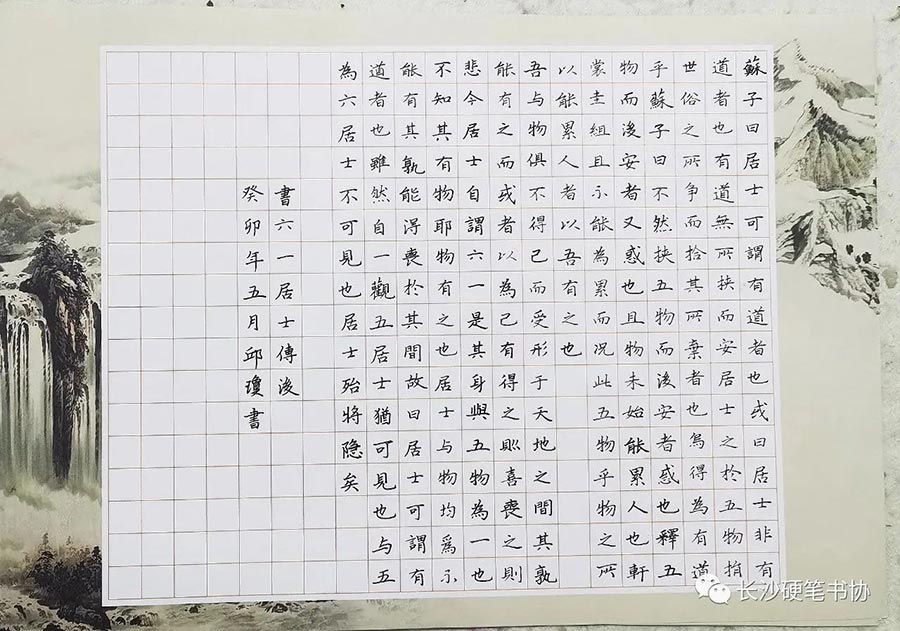 蘇子曰居士可謂有道者也或曰居士非有
道者也有道無所挾而安居士之於五物捐
世俗之所争而拾其所棄者也烏得為有道
乎蘇子曰不然挾五物而後安者惑也釋五
物而後安者又惑也且物未始能累人也軒
裳圭組且不能為累而况此五物乎物之所
以能累人者以吾有之也
吾与物俱不得已而受形于天地之間其孰
能有之而或者以為己有得之則喜喪之則
悲今居士自謂六一是其身與五物為一也
不知其有物耶物有之也居士与物均為不
能有其孰能得喪於其間故曰居士可謂有
道者也雖然自一觀五居士猶可見也与五
為六居士不可見也居士殆將隐矣
書六一居士傳後
癸卯年五月邱瓊書
长沙硬笔书协